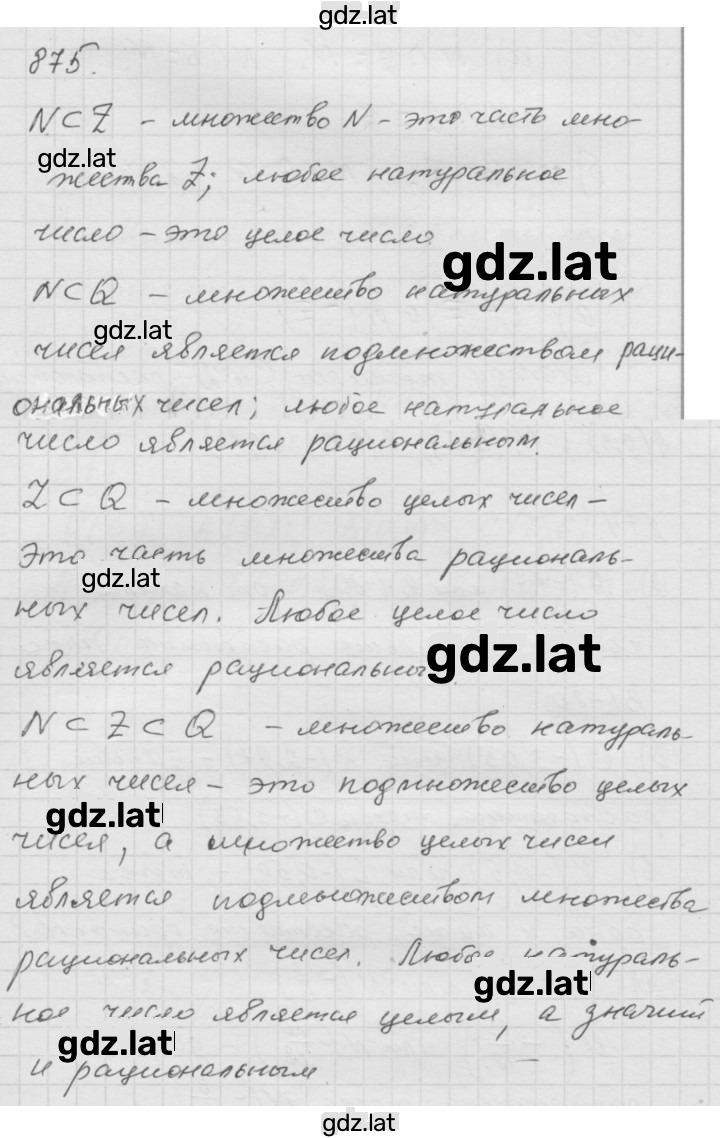 gdz.lat
875.
N⊂Z - множество N - это часть мно-
gdz.lat
жества Z; любое натуральное
число - это целое число
gdz.lat
N⊂Q - множество натуральных
gdz.lat
чисел является подмножеством раци-
ональных чисел; любое натуральное
число является рациональным.
Z⊂Q - множество целых чисел -
Это часть множества рациональ-
gdz.lat
ных чисел. Любое целое число
является рациональны
gdz.lat
N⊂Z⊂Q - множество натураль-
ных чисел - это подмножество целых
gdz.lat
чисел, а множество целых чисел
является подмножеством множества
рациональных чисел. Любое натураль-
gdz.lat
ное число является целым, а значит
gdz.lat
и рациональным
gdz.lat